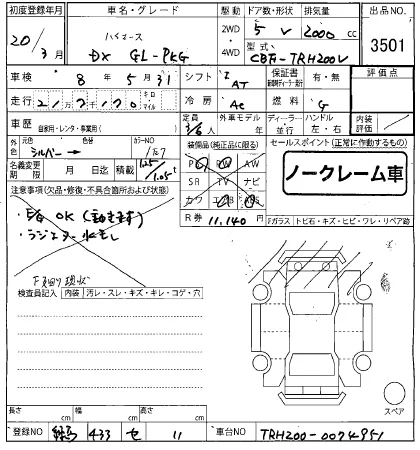 初度登録年月 車名・グレード 駆動 ドア数・形状 排気量 出品NO
20/3月 ハイエース 2WD・4WD 5 V 2000 cc 3501
DX GL-PKG 型式 CBA-TRH200V
車検 8年 5月 31 シフト AT 保証書 有・無 評価点
走行 キロ マイル 冷房 AC 燃料 G
車歴 自家用・レンタ・事業用( ) 定員 3/6人 外車モデル年 ディーラー・並行 ハンドル 左・右 内装
外色 元色 シルバー → カラーNO 1E7 装備品(純正品に限る) セールスポイント(正常に作動するもの)
名義変更期限 月 日迄 積載 1.25/1.05t PS PW AW ノークレーム車
SR TV ナビ
注意事項(欠品・修復・不具合箇所および状態) カワ エアB ABS
・E/G OK (動きます) R券 11,140円
・ラジエター水モレ Fガラス トビ石・キズ・ヒビ・ワレ・リペア跡
下廻り現状
検査員記入 内装 汚レ・スレ・キズ・キレ・コゲ・穴
スペア
長さ cm 幅 cm 高さ cm
登録NO 433 せ 11 車台NO TRH200-0074951